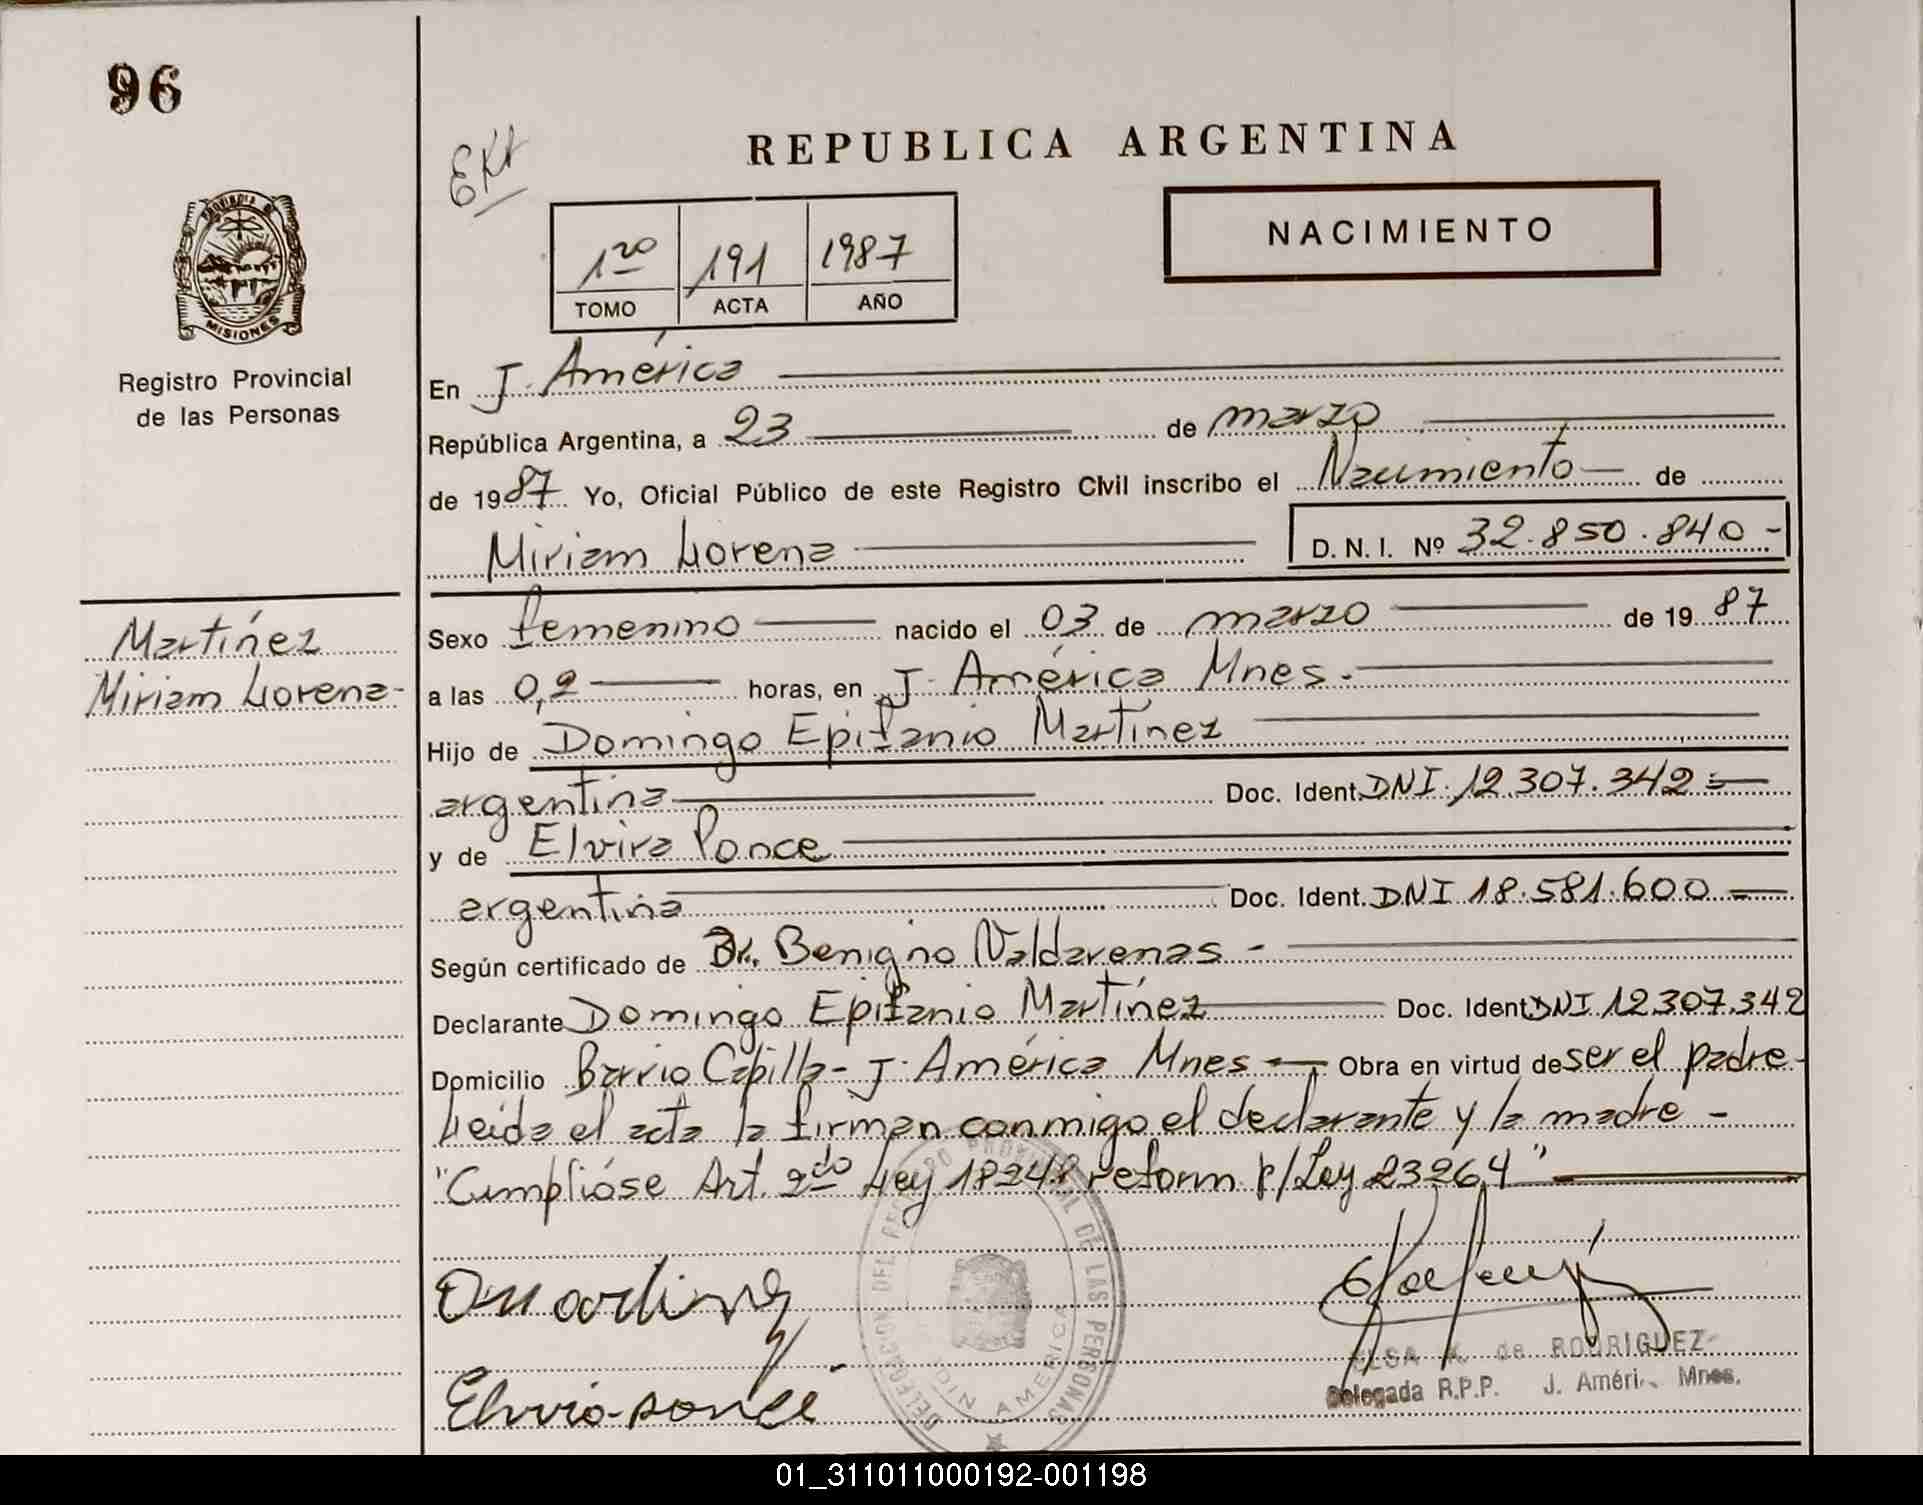 96
EKA
REPUBLICA ARGENTINA
PROVINCIA DE
MISIONES
1ro 191 1987
TOMO ACTA AÑO
NACIMIENTO
Registro Provincial
de las Personas
En J. América
República Argentina, a 23 de marzo
de 1987. Yo, Oficial Público de este Registro Civil inscribo el Nacimiento de
Miriam Lorena D. N. I. Nº 32.850.840-
Martínez
Miriam Lorena-
Sexo femenino nacido el 03 de marzo de 1987
a las 0,2 horas, en J. América Mnes.-
Hijo de Domingo Epifanio Martínez
argentina Doc. Ident. DNI. 12.307.342=
y de Elvira Ponce
argentina Doc. Ident. DNI 18.581.600=
Según certificado de Dr. Benigno Valdarenas -
Declarante Domingo Epifanio Martínez Doc. Ident. DNI 12.307.342
Domicilio Barrio Capilla- J. América Mnes Obra en virtud de ser el padre-
Leida el acta la firman conmigo el declarante y la madre -
"Cumplióse Art. 2do Ley 18248 reform p/Ley 23264"
DELEGACION DEL REGISTRO PROVINCIAL DE LAS PERSONAS
JARDIN AMERICA
Elvira ponce
ELSA K. de RODRIGUEZ
Delegada R.P.P. J. Améri. Mnes.
01_311011000192-001198